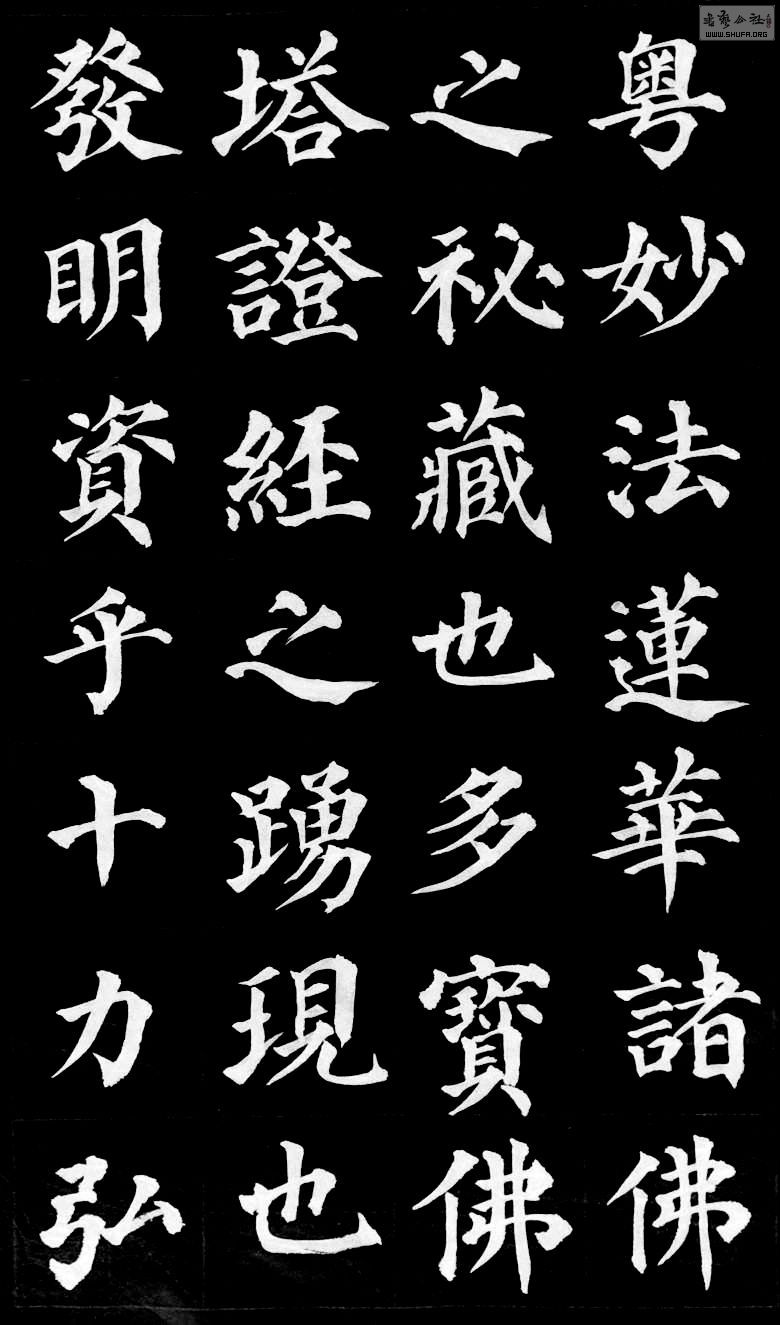 粤妙法蓮華諸佛
之祕藏也多寶佛
塔證經之踴現也
發明資乎十力弘
WWW.SHUFA.ORG